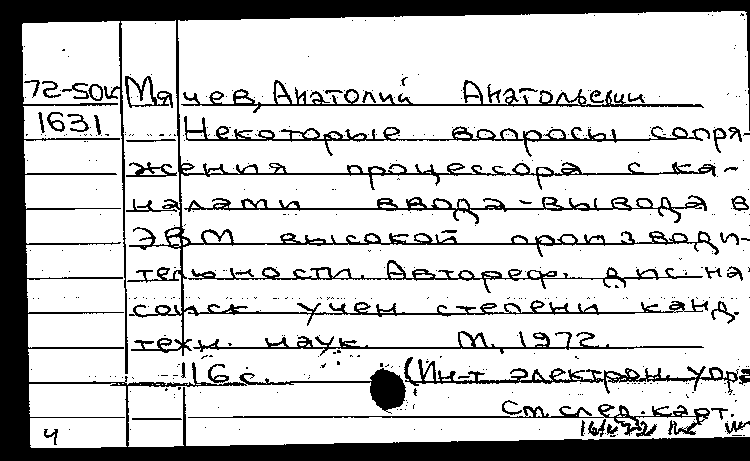 72-50к Мячев, Анатолий Анатольевич
1631 Некоторые вопросы сопря-
жения процессора с ка-
налами ввода-вывода в
ЭВМ высокой производи-
тельности. Автореф. дис. на
соиск. учен. степени канд.
техн. наук. М., 1972.
16 с. (Ин-т электрон. упра
См. след. карт.
4